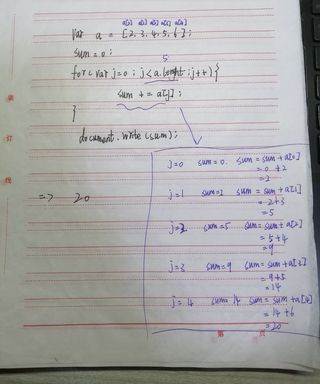 a[0] a[1] a[2] a[3] a[4]
var a = [2,3,4,5,6];
sum = 0;
5
for(var j=0; j<a.lenght; j++){
sum += a[j];
}
document.write(sum);
=> 20
j=0 sum=0. sum=sum+a[0]
=0+2
=2
j=1 sum=2 sum=sum+a[1]
=2+3
=5
j=2 sum=5 sum=sum+a[2]
=5+4
=9
j=3 sum=9 sum=sum+a[3]
=9+5
=14
j=4 sum=14 sum=sum+a[4]
=14+6
=20
装
订
线
第 页